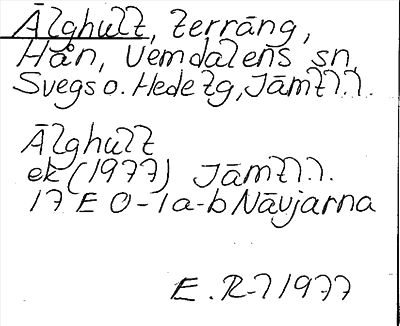 Älghult, terräng,
Hån, Vemdalens sn,
Svegs o. Hede tg, Jämtl.l.
Älghult
ek (1977) Jämtl.l.
17 E 0-1 a-b Nävjarna
E. R-l 1977